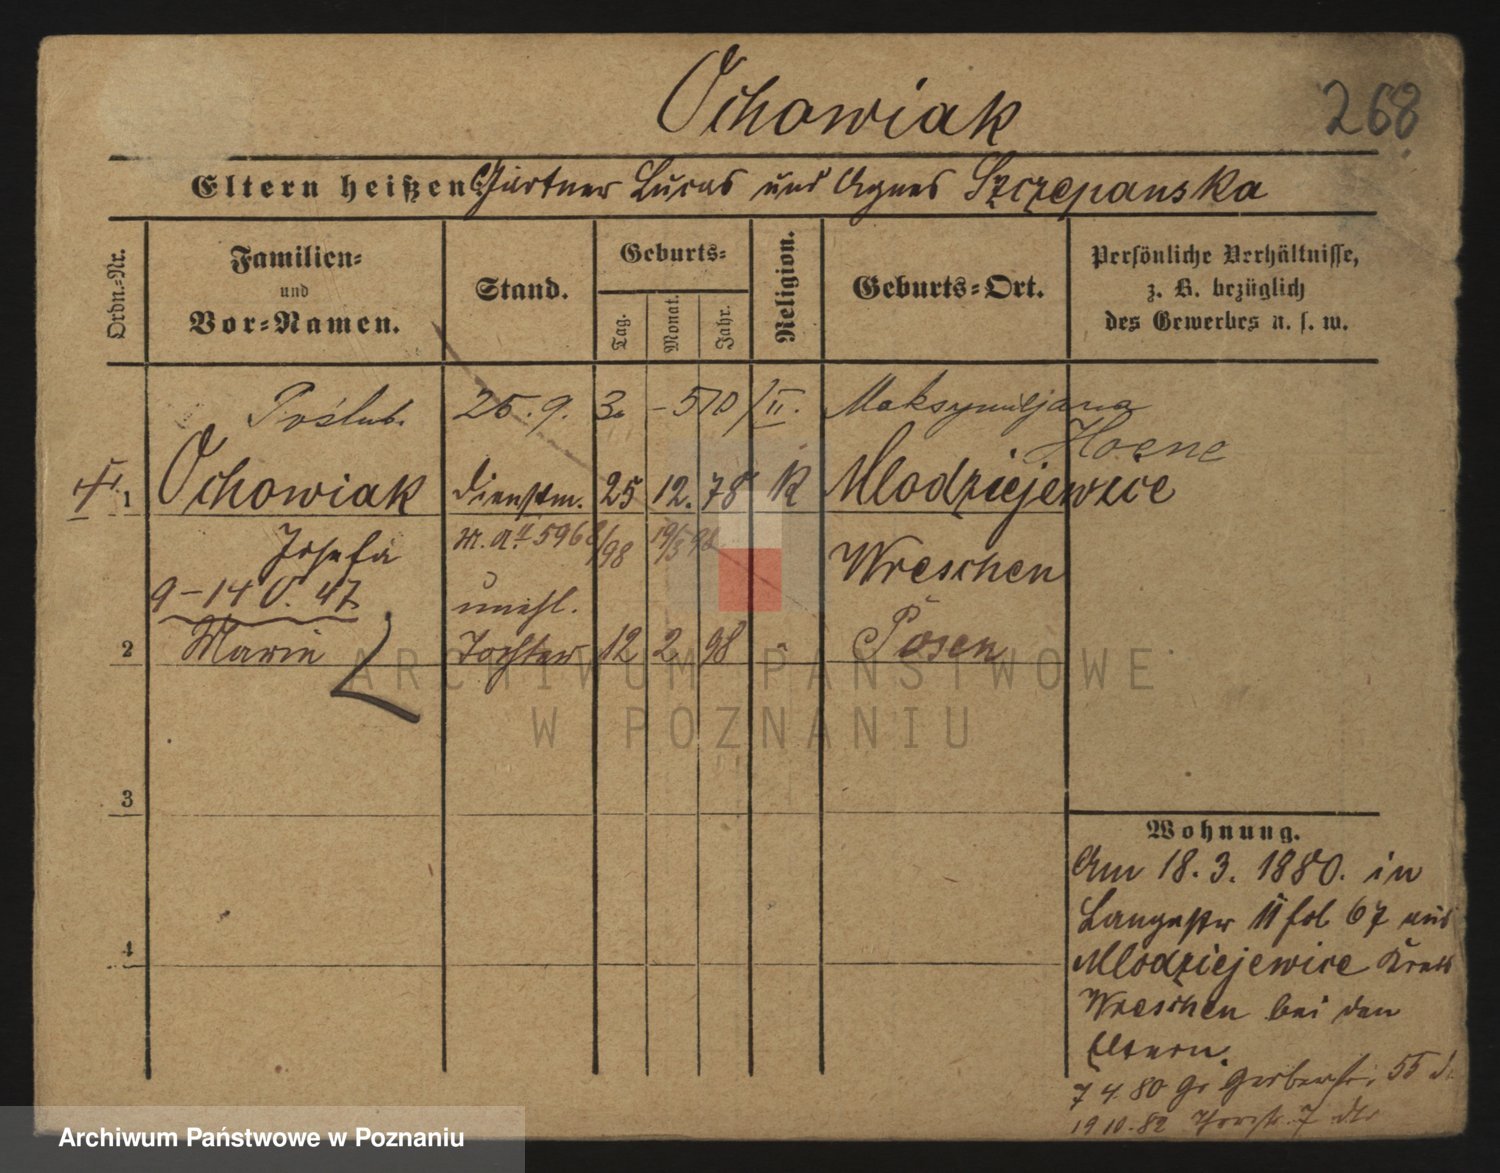 Ochowiak
268
Eltern heißen Gärtner Lucas und Agnes Szczepanska
Ordn.-Nr.
Familien-
und
Vor-Namen.
Stand.
Geburts-
Tag.
Monat.
Jahr.
Religion.
Geburts-Ort.
Persönliche Verhältnisse,
z. B. bezüglich
des Gewerbes u. s. w.
Poślub. 25.9. Maksymiljana
Hoene
1 Ochowiak Dienstm. 25 12. 78 K Mlodziejewice
Josefa Wreschen
9-14 unehl.
2 Marie Tochter 12 2 98 " Posen
3
4
Wohnung.
Am 18.3.1880. in
Langestr 11 fol 67 aus
Mlodziejewice Kreis
Wreschen bei den
Eltern.
7 4. 80 Gr Gerberstr. 55
19 10. 82 7
ARCHIWUM PAŃSTWOWE
W POZNANIU
Archiwum Państwowe w Poznaniu